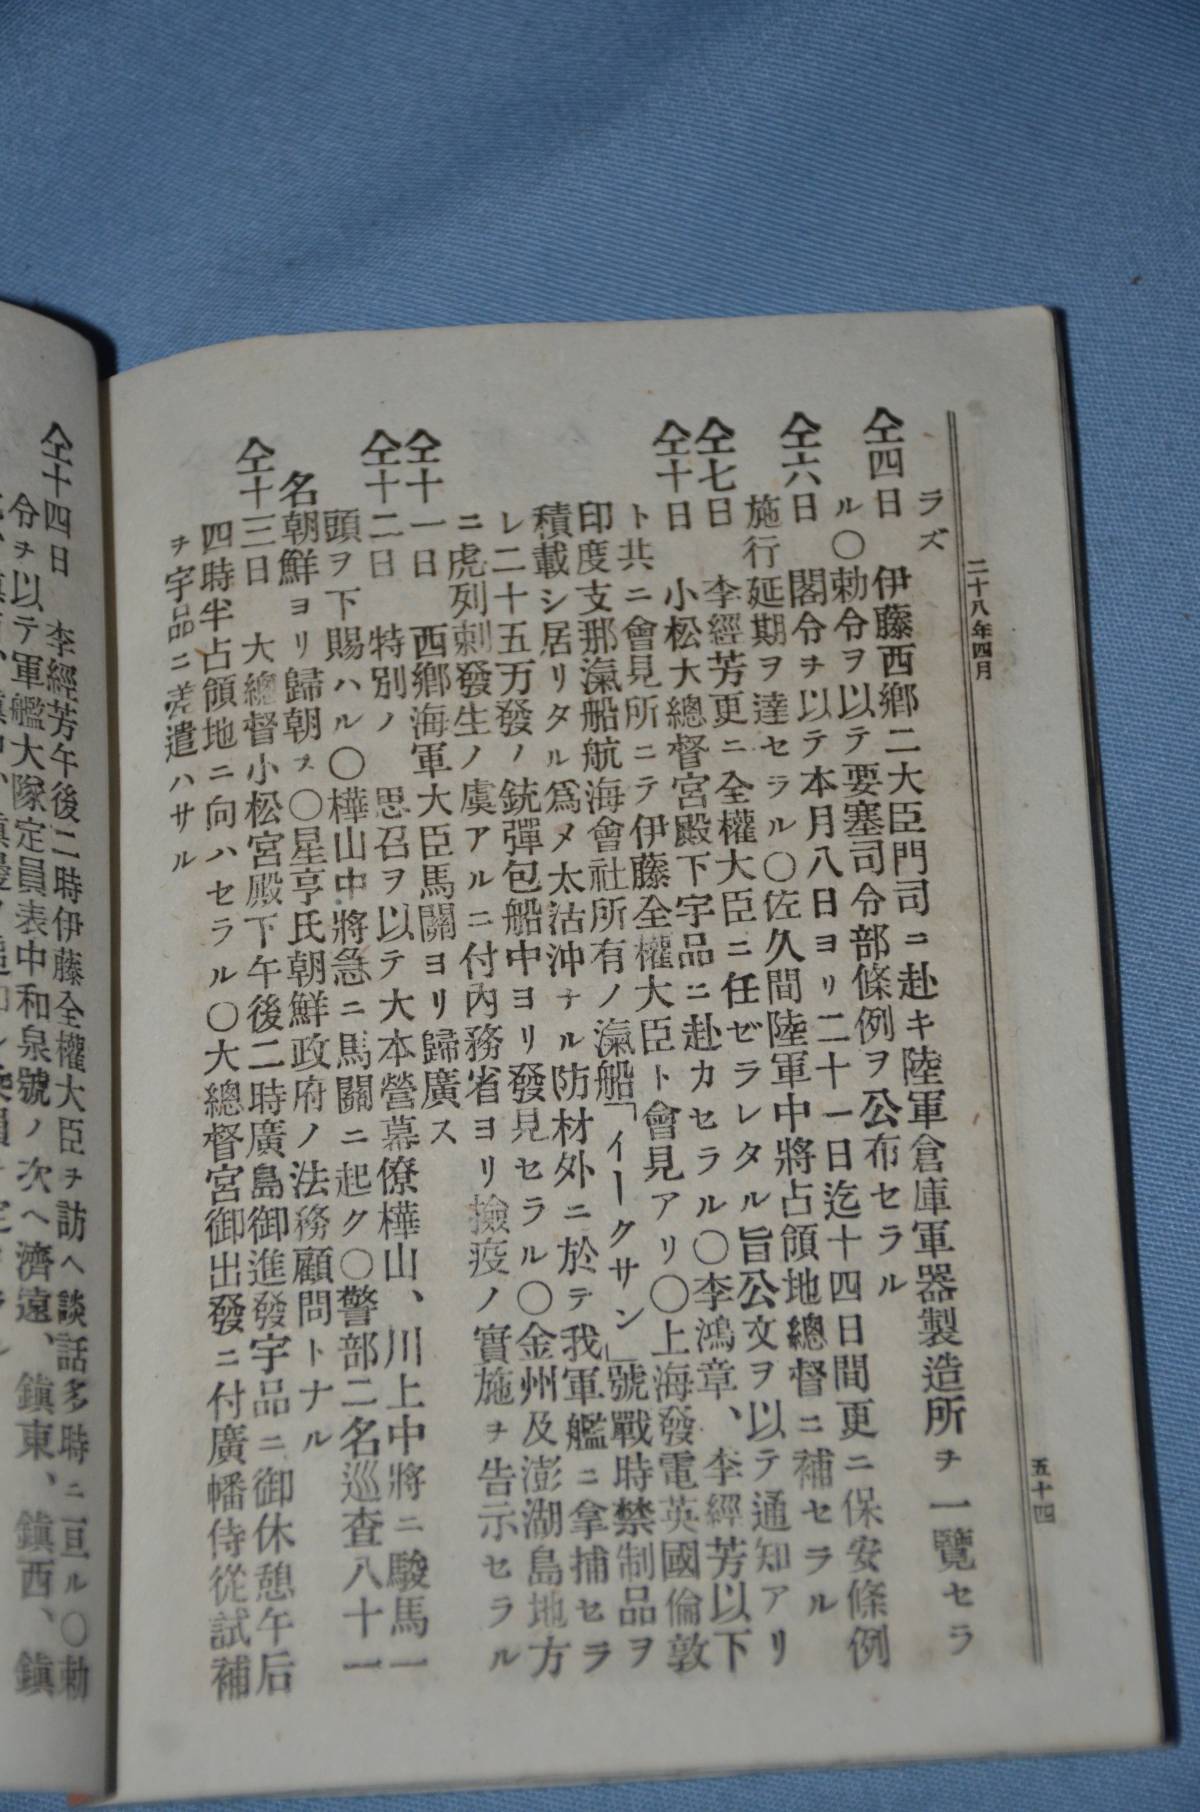 二十八年四月
五十四
ラズ
仝四日 伊藤西鄕二大臣門司ニ赴キ陸軍倉庫軍器製造所ヲ一覽セラ
ル〇勅令ヲ以テ要塞司令部條例ヲ公布セラル
仝六日 閣令ヲ以テ本月八日ヨリ二十一日迄十四日間更ニ保安條例
施行延期ヲ達セラル〇佐久間陸軍中將占領地總督ニ補セラル
仝七日 李經芳更ニ全權大臣ニ任ゼラレタル旨公文ヲ以テ通知アリ
仝十日 小松大總督宮殿下宇品ニ赴カセラル〇李鴻章、李經芳以下
ト共ニ會見所ニテ伊藤全權大臣ト會見アリ〇上海發電英國倫敦
印度支那滊船航海會社所有ノ滊船「イークサン」號戰時禁制品ヲ
積載シ居リタル爲メ太沽沖ナル防材外ニ於テ我軍艦ニ拿捕セラ
レ二十五万發ノ銃彈包船中ヨリ發見セラル〇金州及澎湖島地方
ニ虎列剌發生ノ虞アルニ付內務省ヨリ撿疫ノ實施ヲ告示セラル
仝十一日 西鄕海軍大臣馬關ヨリ歸廣ス
仝十二日 特別ノ 思召ヲ以テ大本營幕僚樺山、川上中將ニ駿馬一
頭ヲ下賜ハル〇樺山中將急ニ馬關ニ起ク〇警部二名巡査八十一
名朝鮮ヨリ歸朝ス〇星亨氏朝鮮政府ノ法務顧問トナル
仝十三日 大總督小松宮殿下午後二時廣島御進發宇品ニ御休憩午后
四時半占領地ニ向ハセラル〇大總督宮御出發ニ付廣幡侍從試補
ヲ宇品ニ差遣ハサル
仝十四日 李經芳午後二時伊藤全權大臣ヲ訪ヘ談話多時ニ亘ル〇勅
令ヲ以テ軍艦大隊定員表中和泉號ノ次ヘ濟遠、鎭東、鎭西、鎭